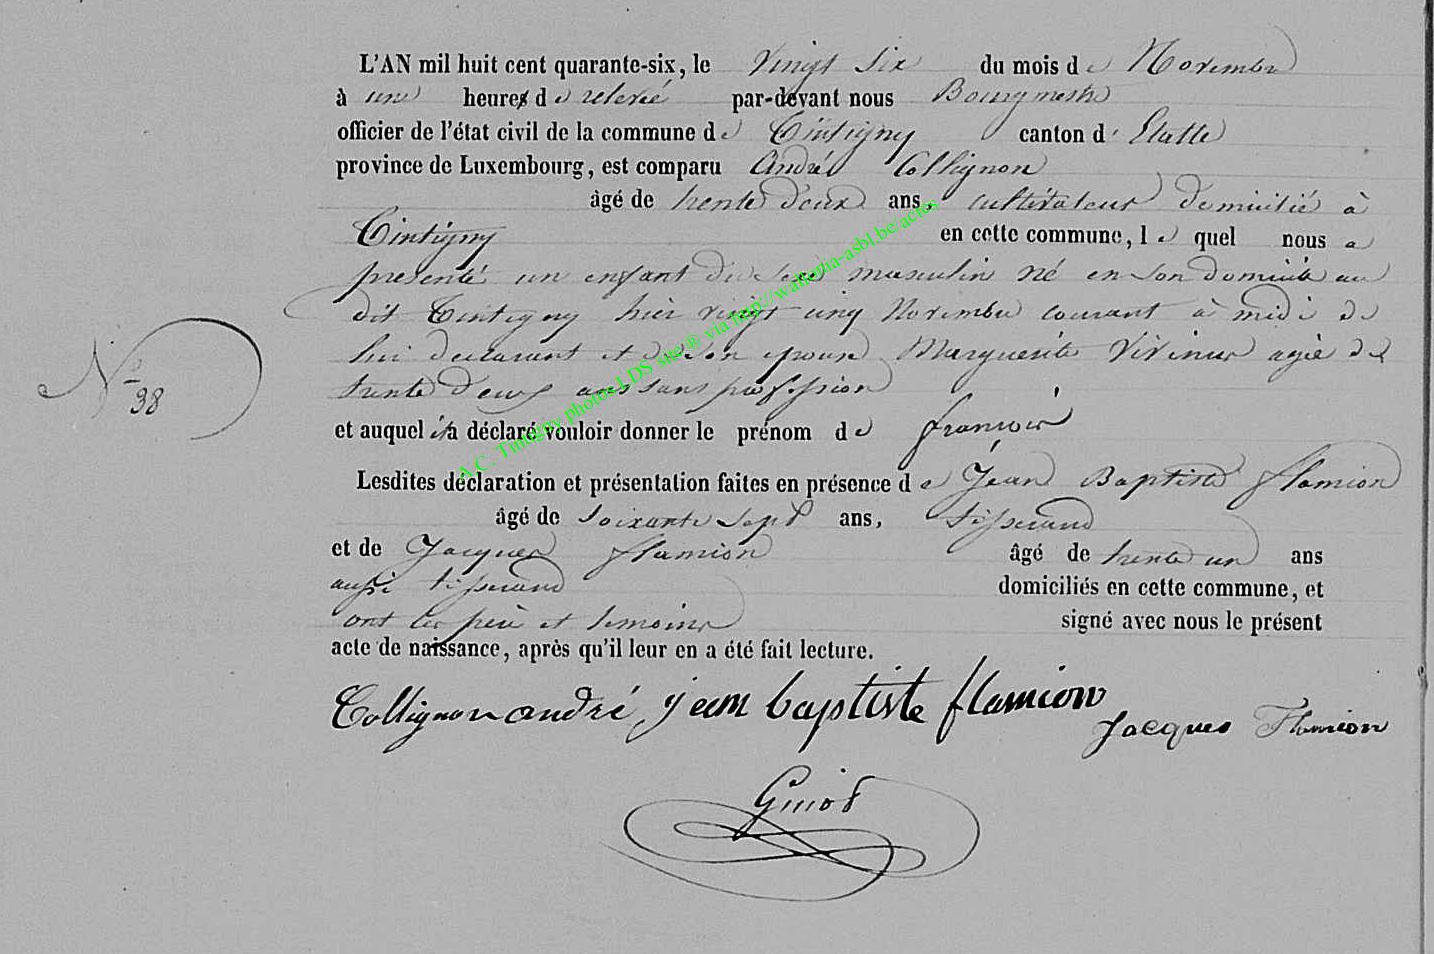 L'AN mil huit cent quarante-six, le vingt six du mois de Novembre
à une heure de relevée par-devant nous Bourgmestre
officier de l'état civil de la commune de Tintigny canton d'Etalle
province de Luxembourg, est comparu André Collignon
âgé de trente deux ans, cultivateur domicilié à
Tintigny en cette commune, le quel nous a
présenté un enfant du sexe masculin né en son domicile au
dit Tintigny hier vingt cinq Novembre courant à midi de
lui déclarant et de son épouse Marguerite Vivinus agée de
N° 38
trente deux ans sans profession
et auquel il a déclaré vouloir donner le prénom de françois
Lesdites déclaration et présentation faites en présence de Jean Baptiste flamion
âgé de soixante sept ans, tisserand
et de Jacques flamion âgé de trente un ans
aussi tisserand domiciliés en cette commune, et
ont les père et témoins signé avec nous le présent
acte de naissance, après qu'il leur en a été fait lecture.
Collignon andré jean baptiste flamion
Jacques Flamion
Guiot
A.C. Tintigny photos LDS site ® via http://wallonia-asbl.be/actes